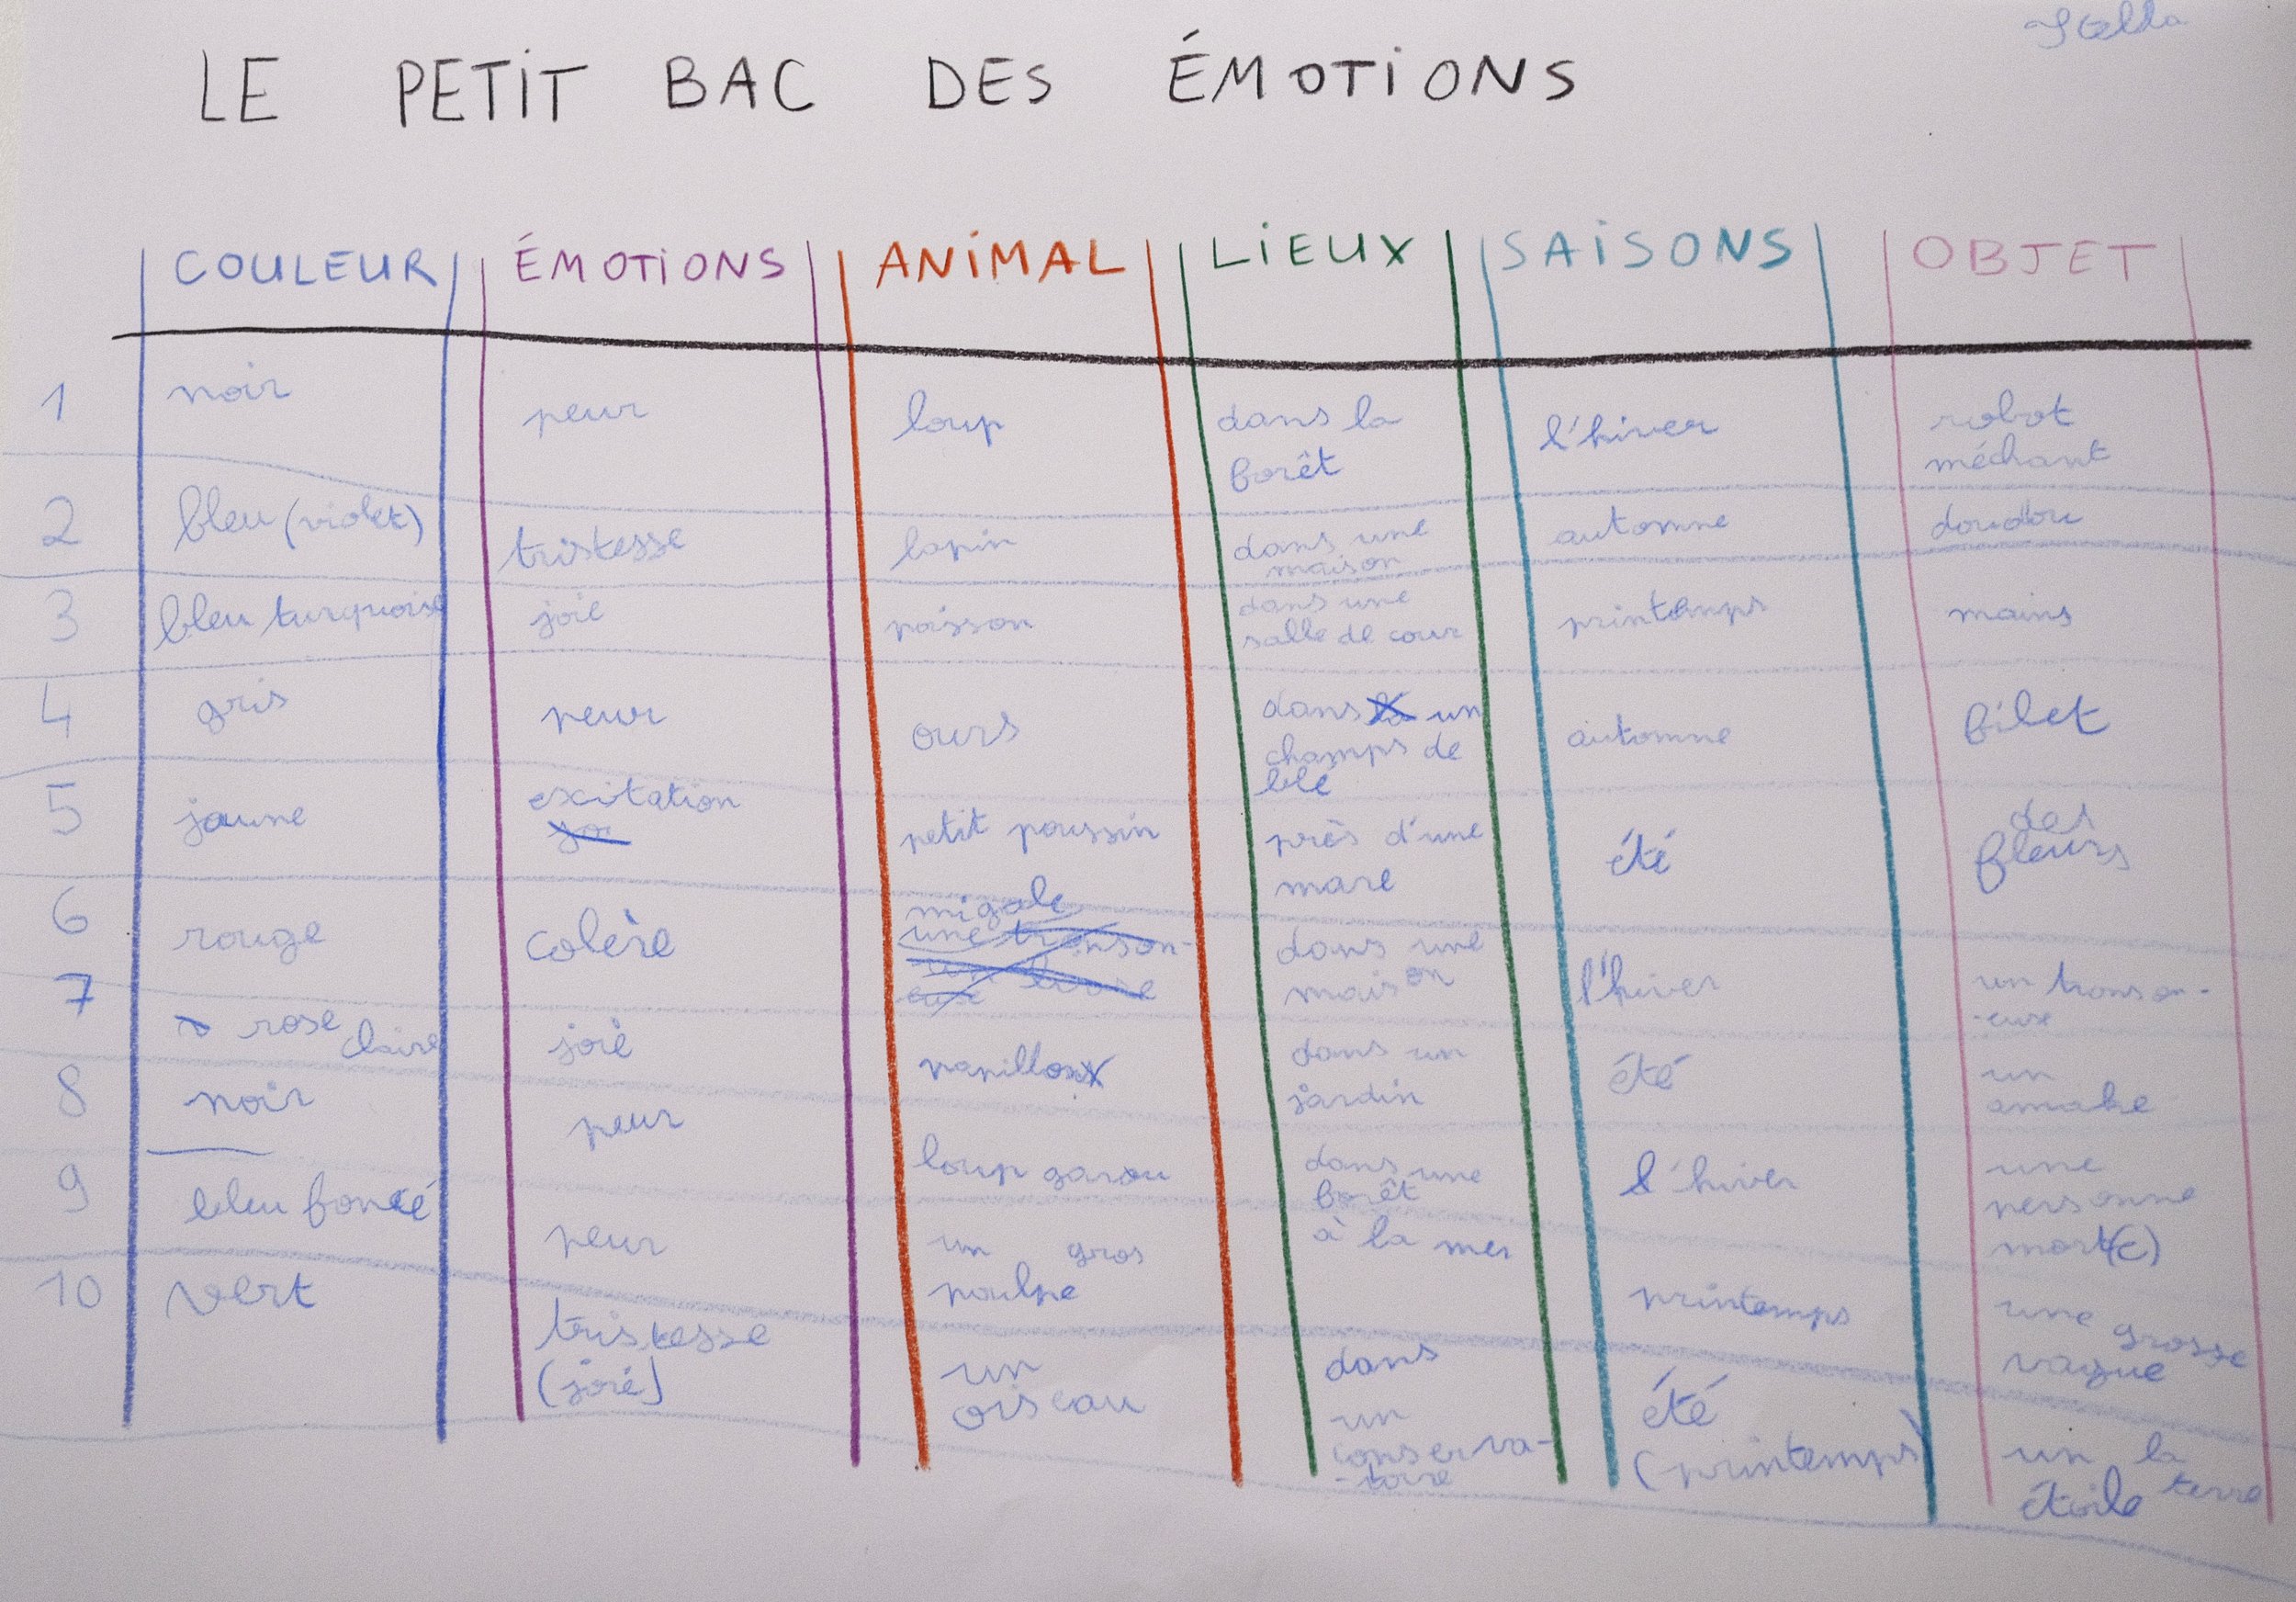 Stella
LE PETIT BAC DES ÉMOTIONS
COULEUR ÉMOTIONS ANIMAL LIEUX SAISONS OBJET
1 noir peur loup dans la forêt l'hiver robot méchant
2 bleu (violet) tristesse lapin dans une maison automne doudou
3 bleu turquoise joie poisson dans une salle de cour printemps mains
4 gris peur ours dans un champs de blé automne filet
5 jaune excitation petit poussin près d'une mare été des fleurs
6 rouge colère migale dans une maison l'hiver un tronson-
-euse
7 rose claire joie papillon dans un jardin été un
8 noir peur loup garou dans une forêt l'hiver une personne mort(e)
9 bleu foncé peur un gros poulpe à la mer printemps une grosse vague
10 vert tristesse (joie) un oiseau dans un conserva-
-toire été (printemps) un étoile la terre